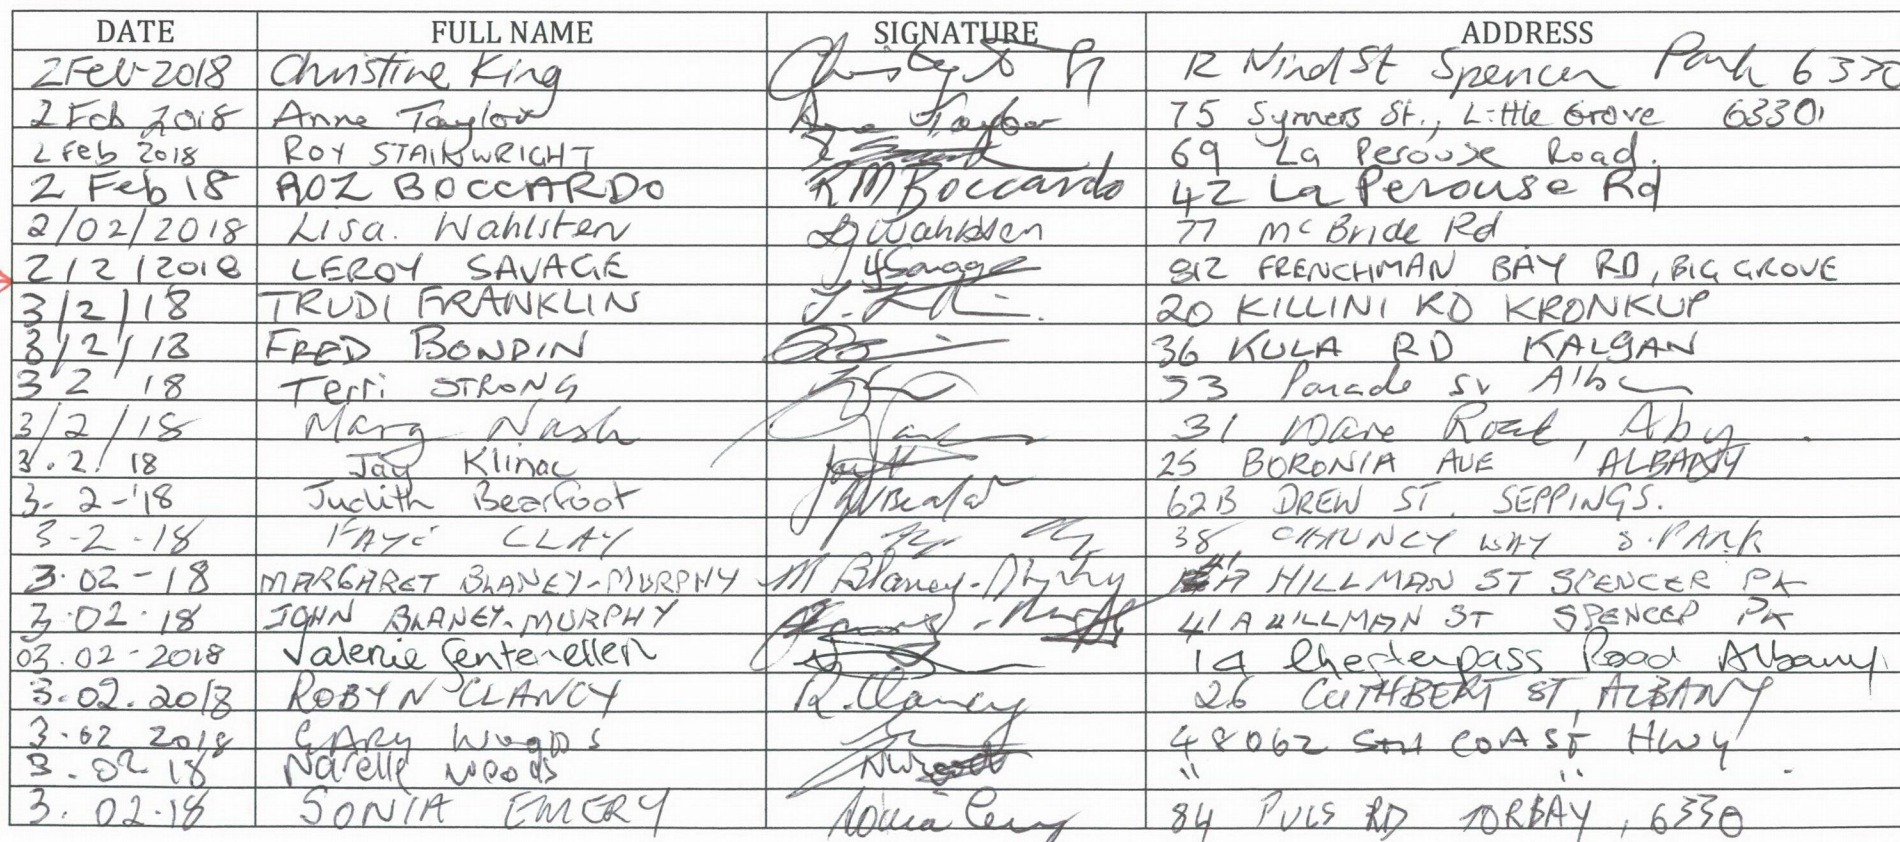 DATE FULL NAME SIGNATURE ADDRESS
2 Feb 2018 Christine King 12 Nind St Spencer Park 6330
2 Feb 2018 Anne Taylor Anne Taylor 75 Symers St., Little Grove 6330
2 Feb 2018 ROY STAINWRIGHT 69 La Perouse Road.
2 Feb 18 ROZ BOCCARDO RM Boccardo 42 La Perouse Rd
2/02/2018 Lisa. Wahlsten Wahlsten 77 McBride Rd
2/2/2018 LEROY SAVAGE Savage 812 FRENCHMAN BAY RD, BIG GROVE
3/2/18 TRUDI FRANKLIN 20 KILLINI RD KRONKUP
3/2/18 FRED BONDIN 36 KULA RD KALGAN
3 2 18 Terri STRONG 53 Parade St
3/2/18 Marg Nash 31 Road,
3.2.18 Jay Klinac 25 BORONIA AVE ALBANY
3-2-'18 Judith Bearfoot 62B DREW ST. SEPPINGS.
3-2-18 FAYE CLAY 38 CHAUNCY WAY S.PARK
3.02-18 MARGARET BLANEY-MURPHY M Blaney-Murphy HILLMAN ST SPENCER PK
3.02.18 JOHN BLANEY-MURPHY 41A HILLMAN ST SPENCER PK
03.02-2018 Valerie 14 Chesterpass Road Albany
3.02.2018 ROBYN CLANCY R. Clancy 26 CUTHBERT ST, ALBANY
3.02 2018 GARY Woods 48062 COAST HWY
3.02 18 Narelle Woods " "
3.02.18 SONIA EMERY Sonia Emery 84 PULS RD TORBAY, 6330